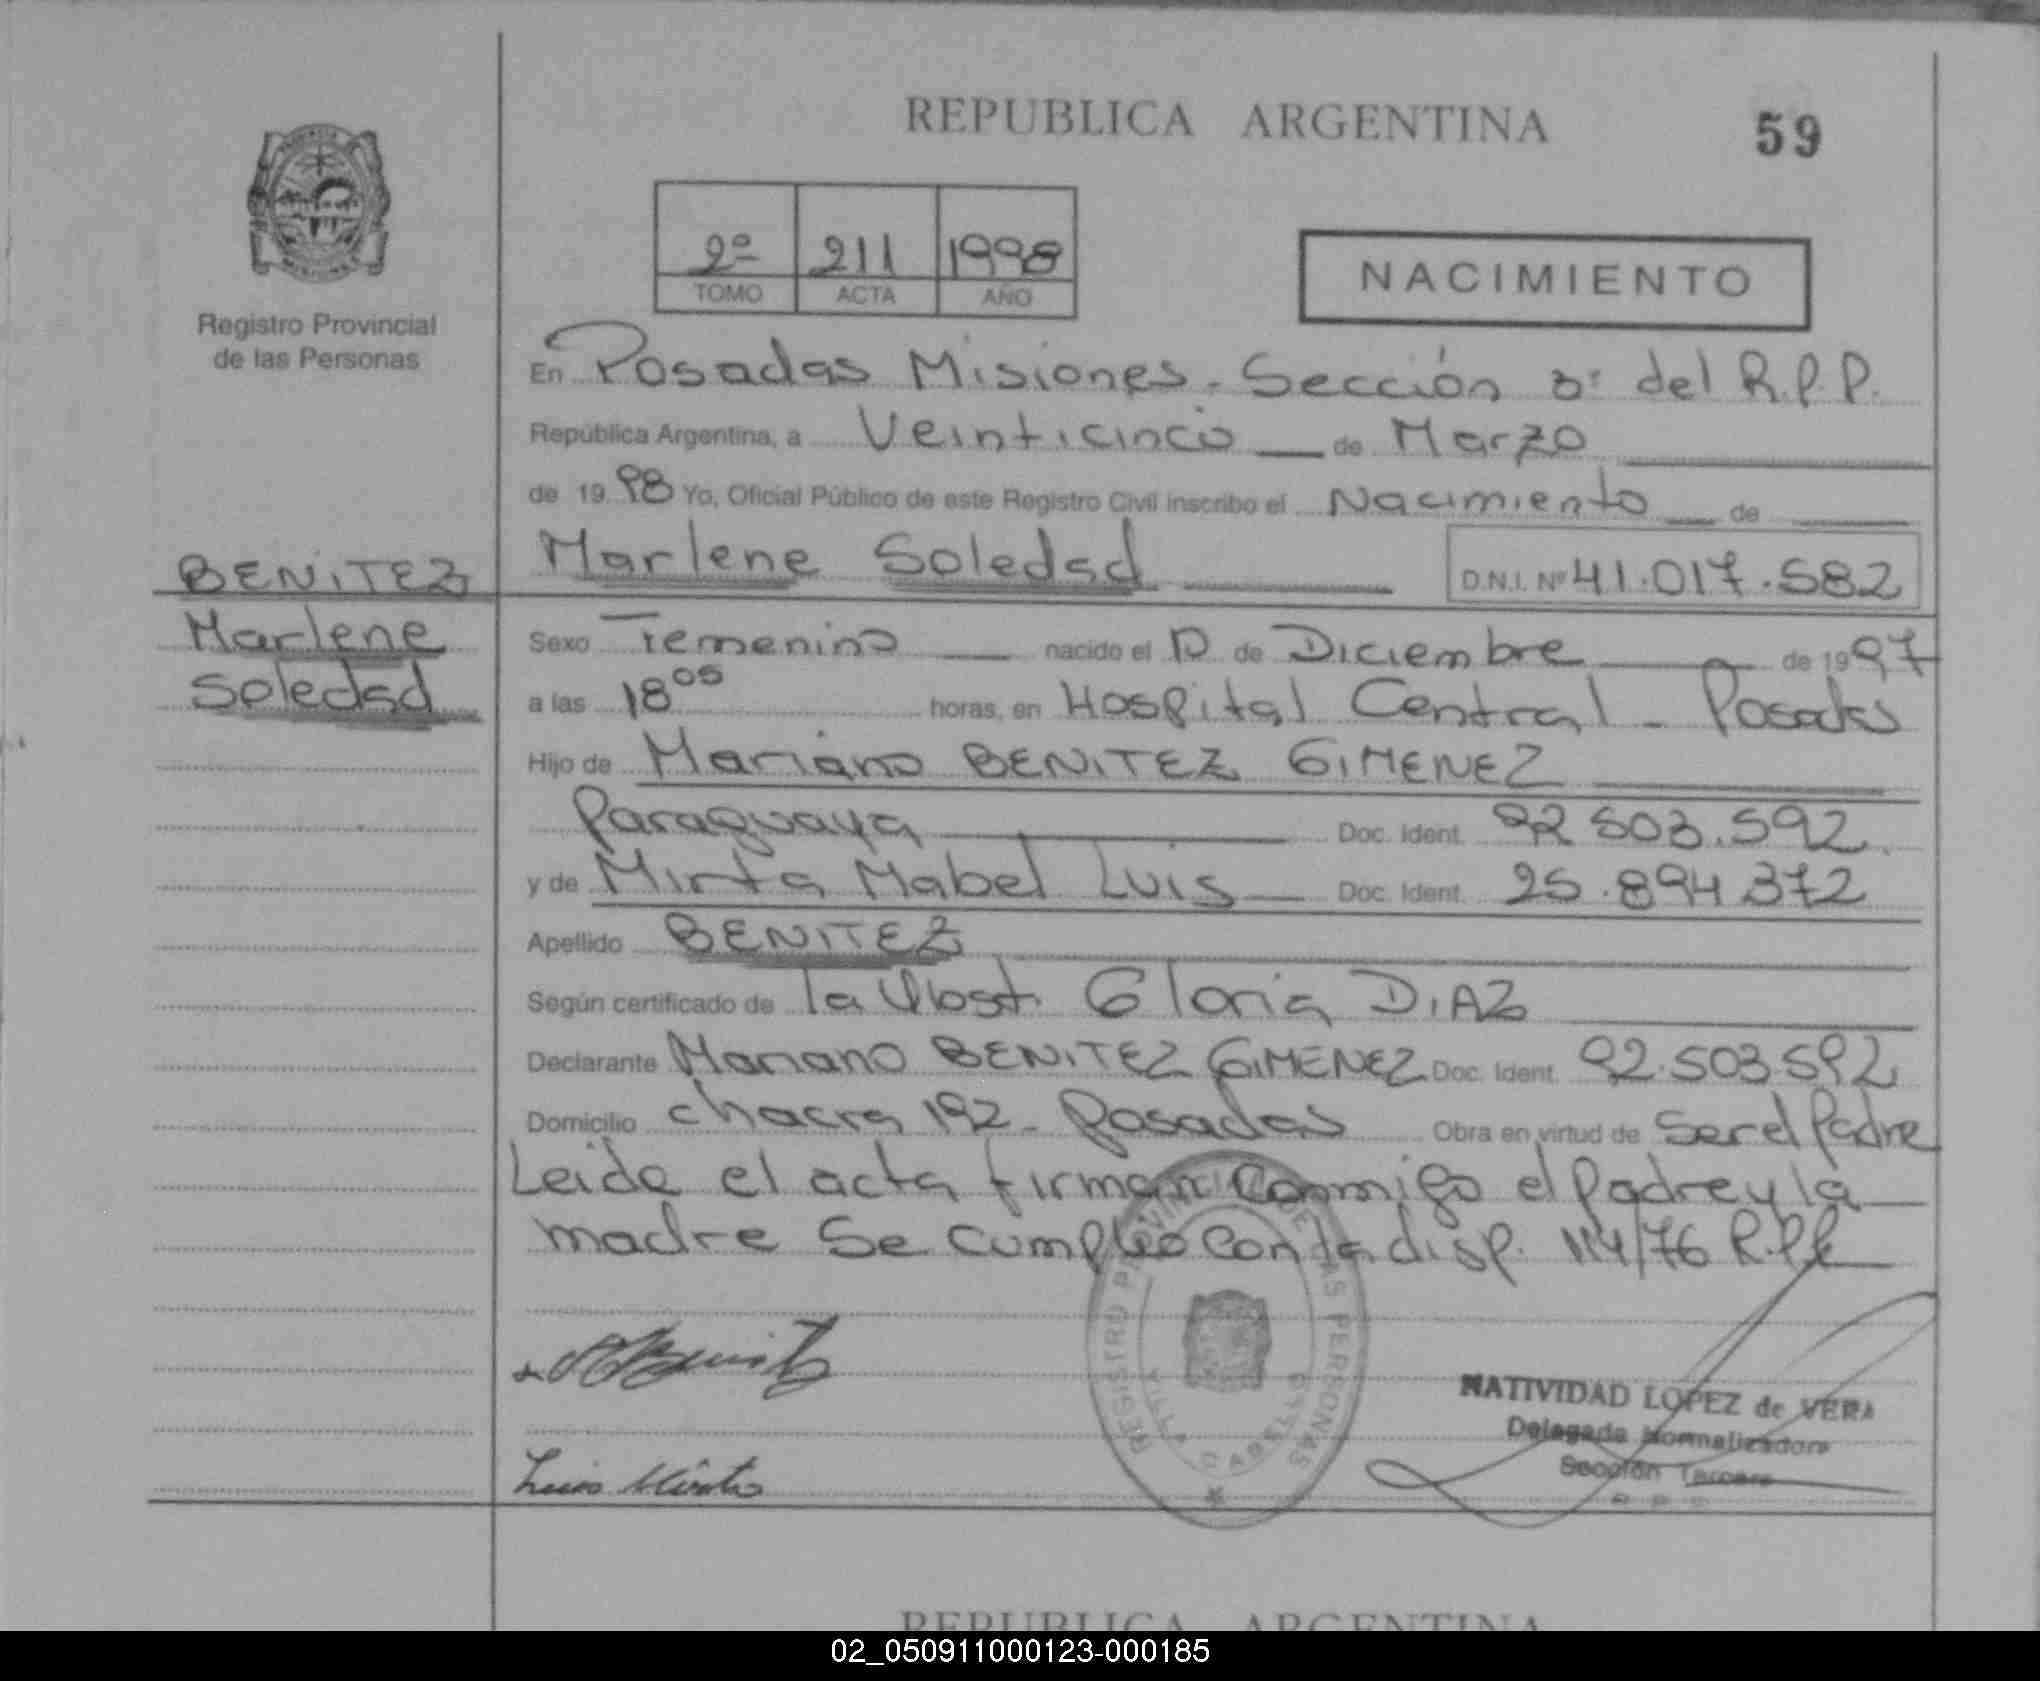 REPUBLICA ARGENTINA
59
2º 211 1998
TOMO ACTA AÑO
NACIMIENTO
Registro Provincial
de las Personas
En Posadas Misiones - Sección 3º del R.P.P.
República Argentina, a Veinticinco de Marzo
de 19 98 Yo, Oficial Público de este Registro Civil inscribo el Nacimiento de
Marlene Soledad D.N.I. Nº 41.017.582
BENITEZ
Marlene
Soledad
Sexo Femenino nacido el de Diciembre de 19 97
a las 18 05 horas, en Hospital Central - Posadas
Hijo de Mariano BENITEZ GIMENEZ
Paraguaya Doc. Ident. 92 503.592
y de Mirta Mabel Luis Doc. Ident. 25.894 372
Apellido BENITEZ
Según certificado de la Obst. Gloria DIAZ
Declarante Mariano BENITEZ GIMENEZ Doc. Ident. 92.503.592
Domicilio chacra 192 - Posadas Obra en virtud de Ser el Padre
Leida el acta firman conmigo el Padre y la
madre Se cumplio con la disp. 114/76 R.P.P.
REGISTRO PROVINCIAL DE LAS PERSONAS
VILLA CABELLO
Luis Mirta
NATIVIDAD LOPEZ de VERA
Delegada Normalizadora
Sección Tercera
REPUBLICA ARGENTINA
02_050911000123-000185